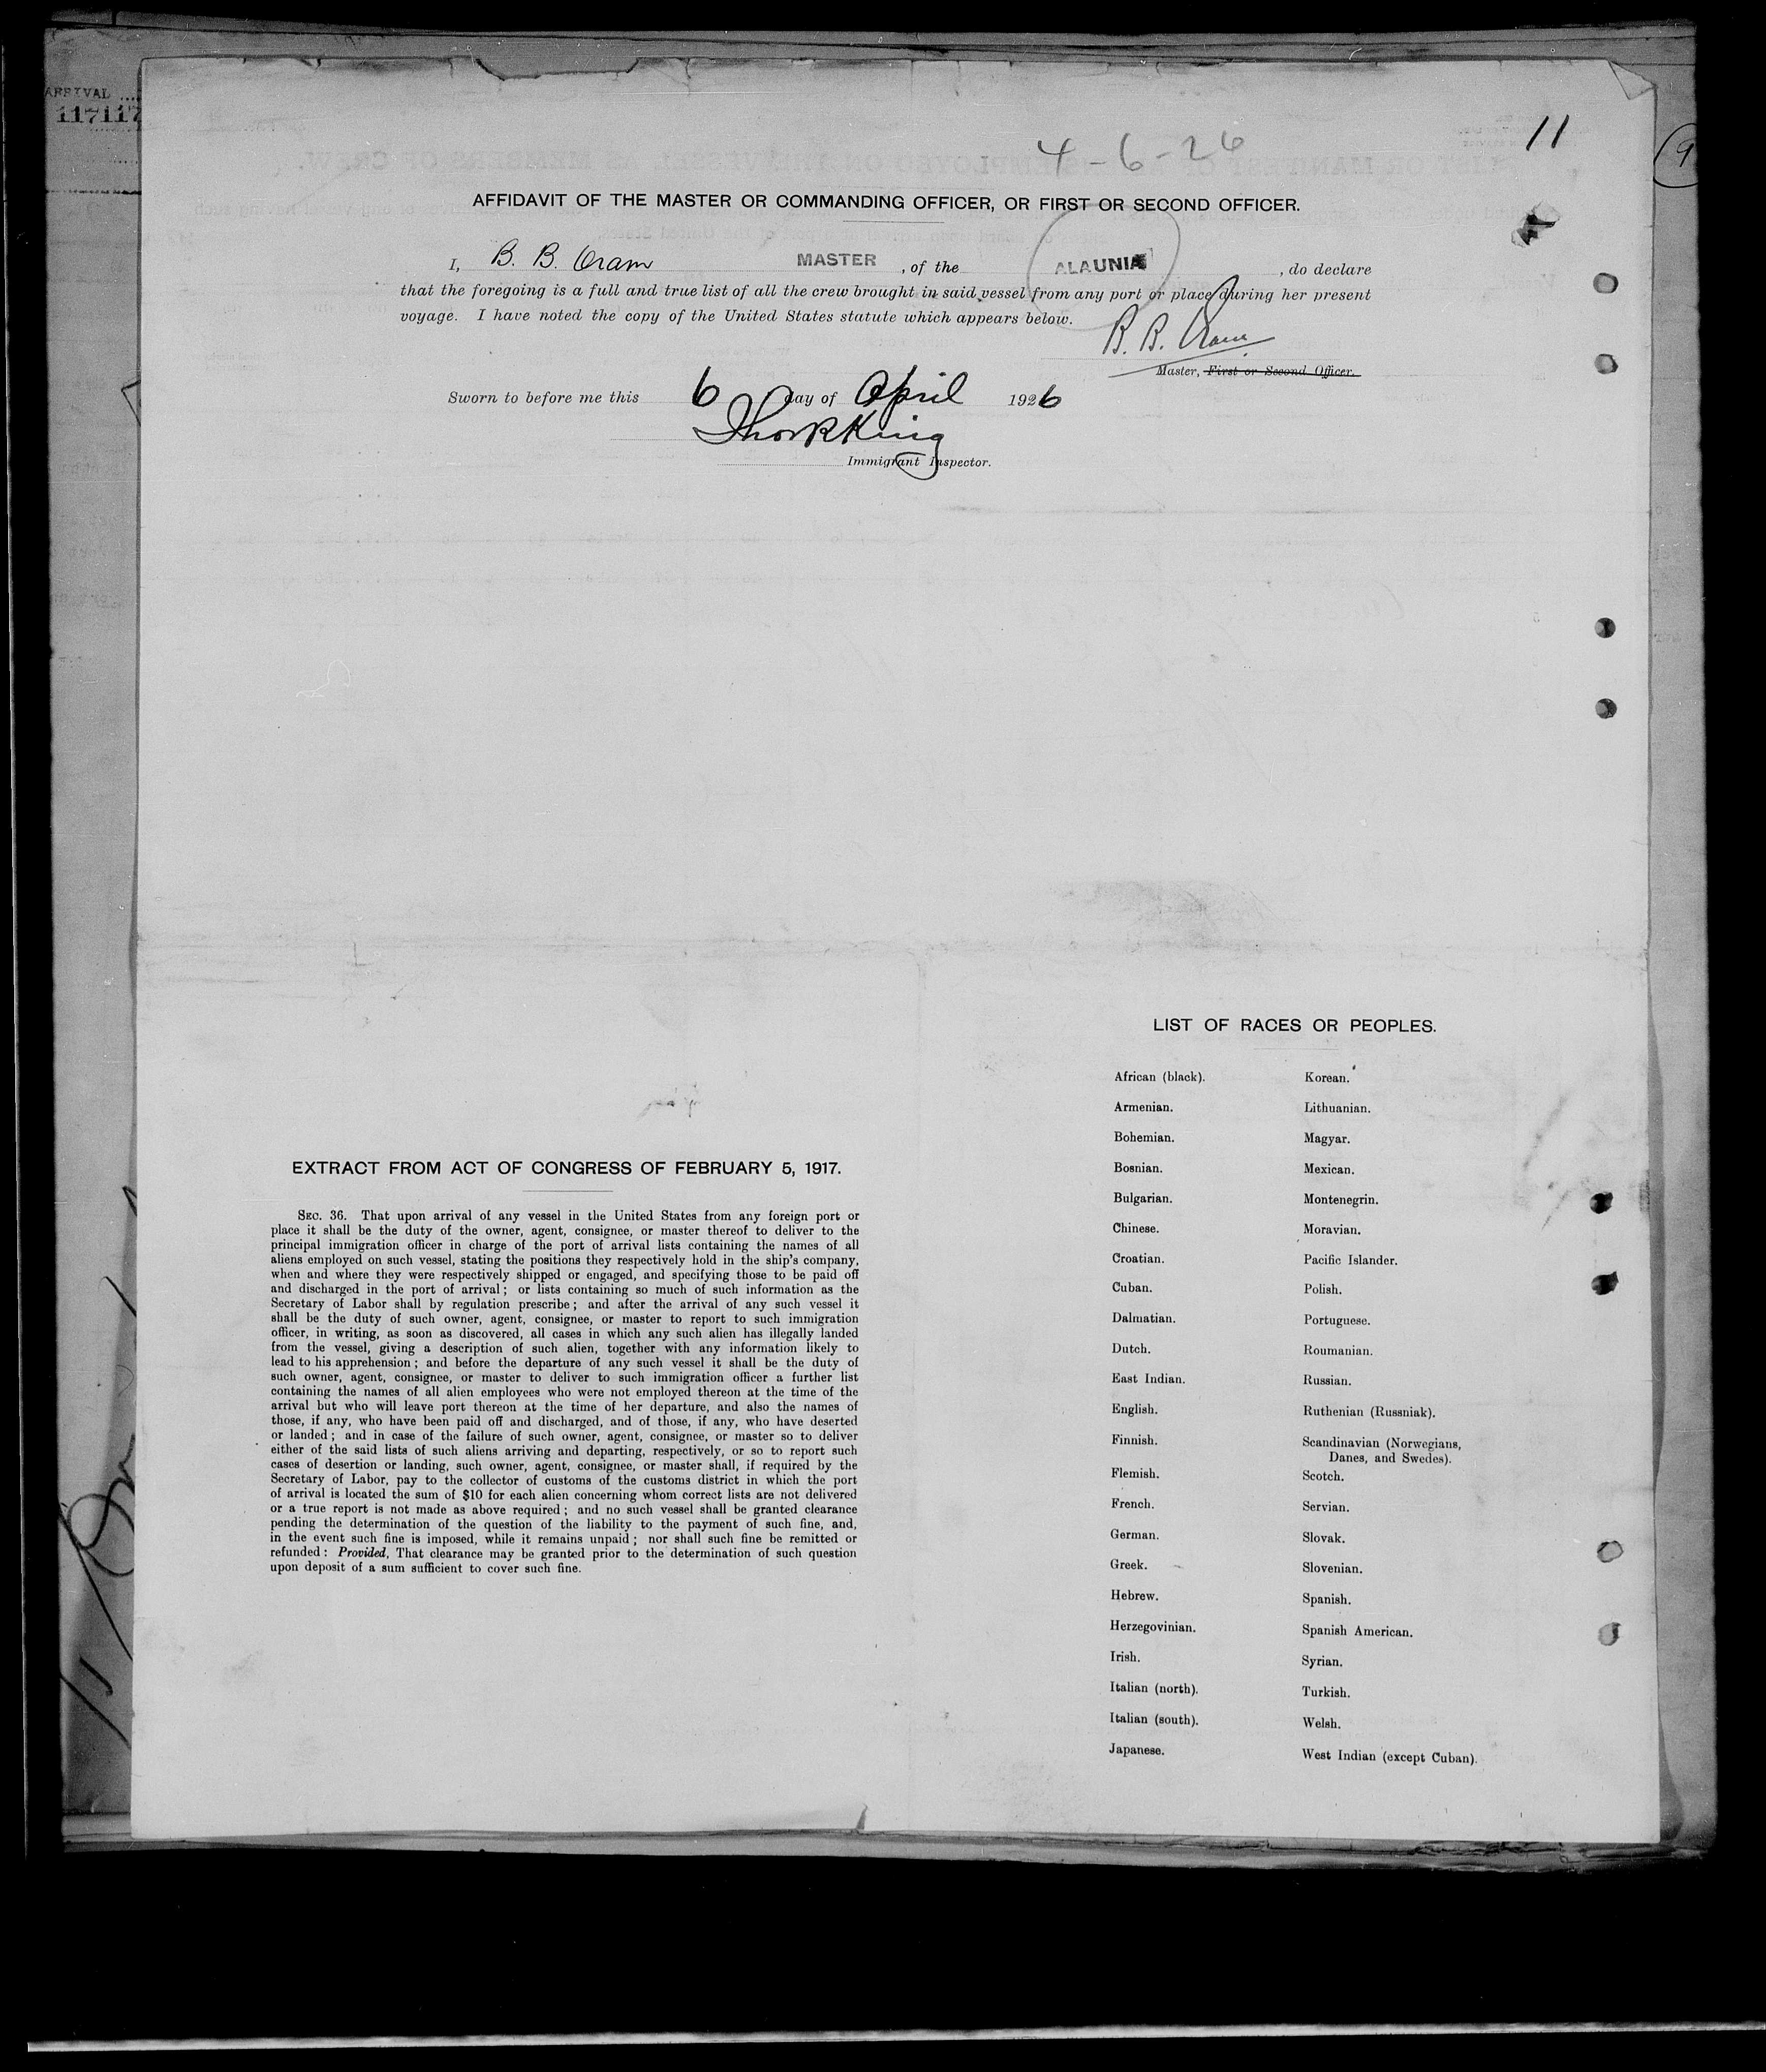 ARRIVAL
117117
4-6-26
11
9
AFFIDAVIT OF THE MASTER OR COMMANDING OFFICER, OR FIRST OR SECOND OFFICER.
I, B. B. Oram MASTER, of the ALAUNIA, do declare
that the foregoing is a full and true list of all the crew brought in said vessel from any port or place during her present
voyage. I have noted the copy of the United States statute which appears below.
B. B. Oram
Master, First or Second Officer.
Sworn to before me this 6 day of April 1926
Thos R King
Immigrant Inspector.
EXTRACT FROM ACT OF CONGRESS OF FEBRUARY 5, 1917.
SEC. 36. That upon arrival of any vessel in the United States from any foreign port or
place it shall be the duty of the owner, agent, consignee, or master thereof to deliver to the
principal immigration officer in charge of the port of arrival lists containing the names of all
aliens employed on such vessel, stating the positions they respectively hold in the ship's company,
when and where they were respectively shipped or engaged, and specifying those to be paid off
and discharged in the port of arrival; or lists containing so much of such information as the
Secretary of Labor shall by regulation prescribe; and after the arrival of any such vessel it
shall be the duty of such owner, agent, consignee, or master to report to such immigration
officer, in writing, as soon as discovered, all cases in which any such alien has illegally landed
from the vessel, giving a description of such alien, together with any information likely to
lead to his apprehension; and before the departure of any such vessel it shall be the duty of
such owner, agent, consignee, or master to deliver to such immigration officer a further list
containing the names of all alien employees who were not employed thereon at the time of the
arrival but who will leave port thereon at the time of her departure, and also the names of
those, if any, who have been paid off and discharged, and of those, if any, who have deserted
or landed; and in case of the failure of such owner, agent, consignee, or master so to deliver
either of the said lists of such aliens arriving and departing, respectively, or so to report such
cases of desertion or landing, such owner, agent, consignee, or master shall, if required by the
Secretary of Labor, pay to the collector of customs of the customs district in which the port
of arrival is located the sum of $10 for each alien concerning whom correct lists are not delivered
or a true report is not made as above required; and no such vessel shall be granted clearance
pending the determination of the question of the liability to the payment of such fine, and,
in the event such fine is imposed, while it remains unpaid; nor shall such fine be remitted or
refunded: Provided, That clearance may be granted prior to the determination of such question
upon deposit of a sum sufficient to cover such fine.
LIST OF RACES OR PEOPLES.
African (black).
Armenian.
Bohemian.
Bosnian.
Bulgarian.
Chinese.
Croatian.
Cuban.
Dalmatian.
Dutch.
East Indian.
English.
Finnish.
Flemish.
French.
German.
Greek.
Hebrew.
Herzegovinian.
Irish.
Italian (north).
Italian (south).
Japanese.
Korean.
Lithuanian.
Magyar.
Mexican.
Montenegrin.
Moravian.
Pacific Islander.
Polish.
Portuguese.
Roumanian.
Russian.
Ruthenian (Russniak).
Scandinavian (Norwegians,
Danes, and Swedes).
Scotch.
Servian.
Slovak.
Slovenian.
Spanish.
Spanish American.
Syrian.
Turkish.
Welsh.
West Indian (except Cuban).